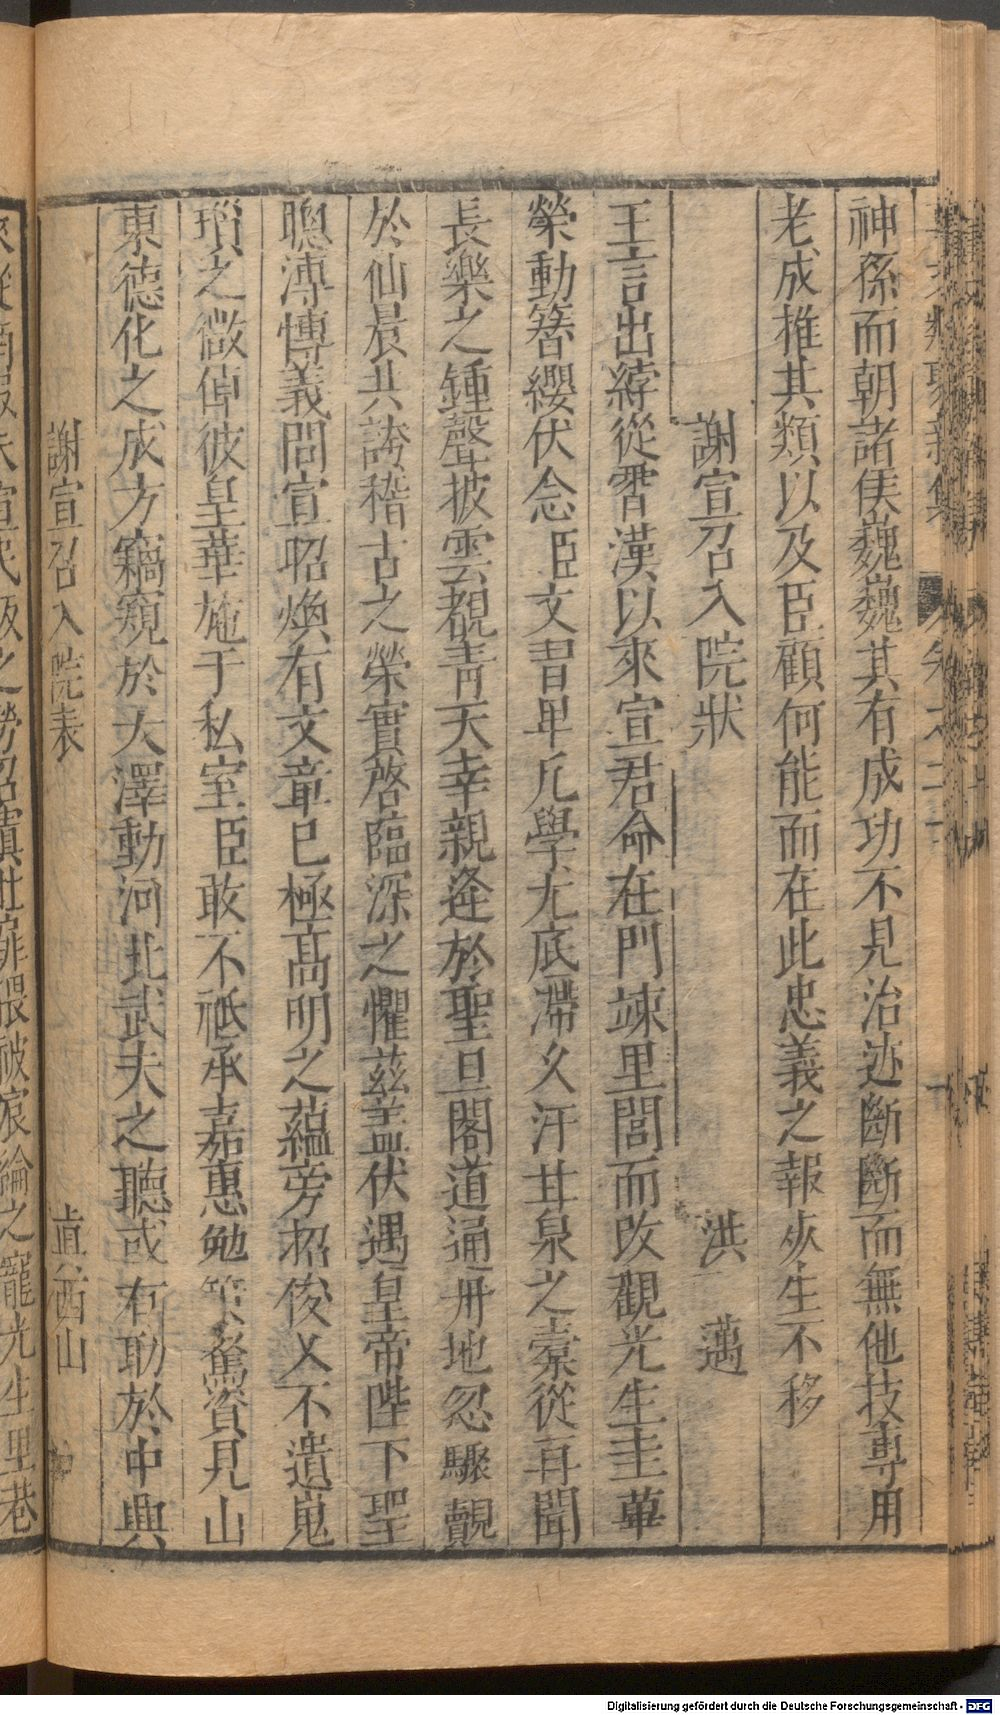 神孫而朝諸侯巍巍其有成功不見治迹斷斷而無他技專用
老成推其類以及臣顧何能而在此忠義之報灰生不移
謝宣召入院狀 洪邁
王言出綍從霄漢以來宣君命在門竦里閭而改觀光生圭蓽
榮動簪纓伏念臣文書卑凡學尤底滯久汗甘泉之橐從再聞
長樂之鍾聲披雲覩青天幸親逢於聖旦閣道通丹地忽驟覿
於仙晨共誇稽古之榮實啓臨深之懼茲盖伏遇皇帝陛下聖
聰溥愽義問宣昭煥有文章巳極髙明之蘊旁招俊乂不遺嵬
瑣之微俾彼皇華施于私室臣敢不祗承嘉惠勉策駑資見山
東德化之成方竊窺於大澤動河北武夫之聽或有助於中興
謝宣召入院表 真西山
之勞 之寵光生里巷
Digitalisierung gefördert durch die Deutsche Forschungsgemeinschaft - DFG